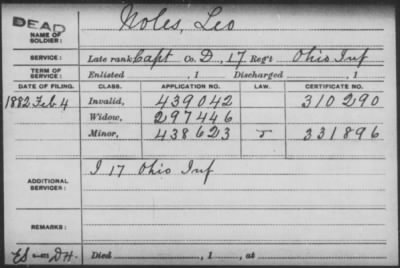 DEAD
NAME OF SOLDIER: Noles, Leo
SERVICE: Late rank Capt Co. D, 17 Reg't Ohio Inf
TERM OF SERVICE: Enlisted , 1 Discharged , 1
DATE OF FILING. CLASS. APPLICATION NO. LAW. CERTIFICATE NO.
1882 Feb 4 Invalid, 439042 310290
Widow, 297446
Minor, 438623 J 331896
ADDITIONAL SERVICES: I 17 Ohio Inf
REMARKS:
Died , 1 , at